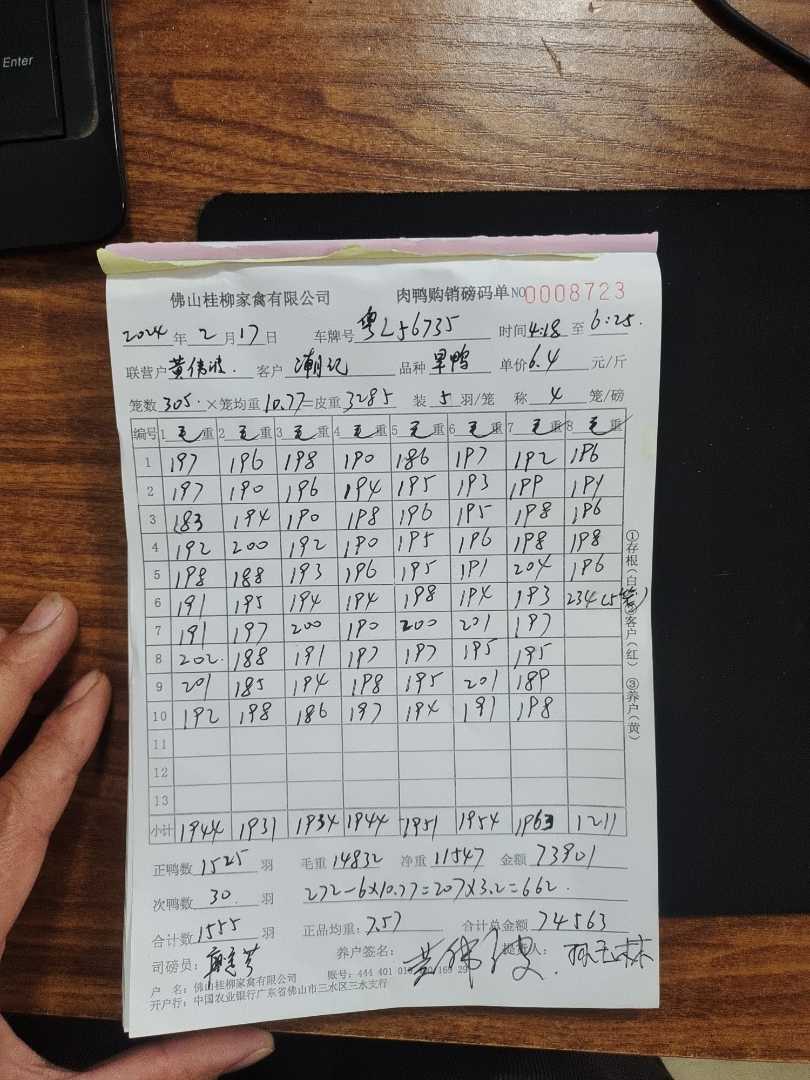 Enter
佛山桂柳家禽有限公司 肉鸭购销磅码单 NO 0008723
2024 年 2 月 17 日 车牌号 粤L56735 时间 4:18 至 6:25.
联营户 黄伟波. 客户 潮记 品种 旱鸭 单价 6.4 元/斤
笼数 305. ×笼均重 10.77=皮重 3285 装 5 羽/笼 称 4 笼/磅
编号 1 毛重 2 毛重 3 毛重 4 毛重 5 毛重 6 毛重 7 毛重 8 毛重
1 197 196 198 190 186 197 192 196
2 197 190 196 194 195 193 199 191
3 183 194 190 198 196 195 198 196
4 192 200 192 190 195 196 198 198
5 198 188 193 196 195 191 204 196
6 191 195 194 194 198 194 193 234(5笼)
7 191 197 200 190 200 201 197
8 202. 188 191 197 197 195 195
9 201 185 194 198 195 201 189
10 192 198 186 197 194 191 198
11
12
13
小计 1944 1931 1934 1944 1951 1954 1963 1211
①存根(白)②客户(红) ③养户(黄)
正鸭数 1525 羽 毛重 14832 净重 11547 金额 73901
次鸭数 30. 羽 272-6×10.77=207×3.2=662.
合计数 1555 羽 正品均重: 7.57 合计总金额 74563
司磅员: 养户签名: 提货人:
户 名: 佛山桂柳家禽有限公司 账号: 444 401 010
开户行: 中国农业银行广东省佛山市三水区三水支行